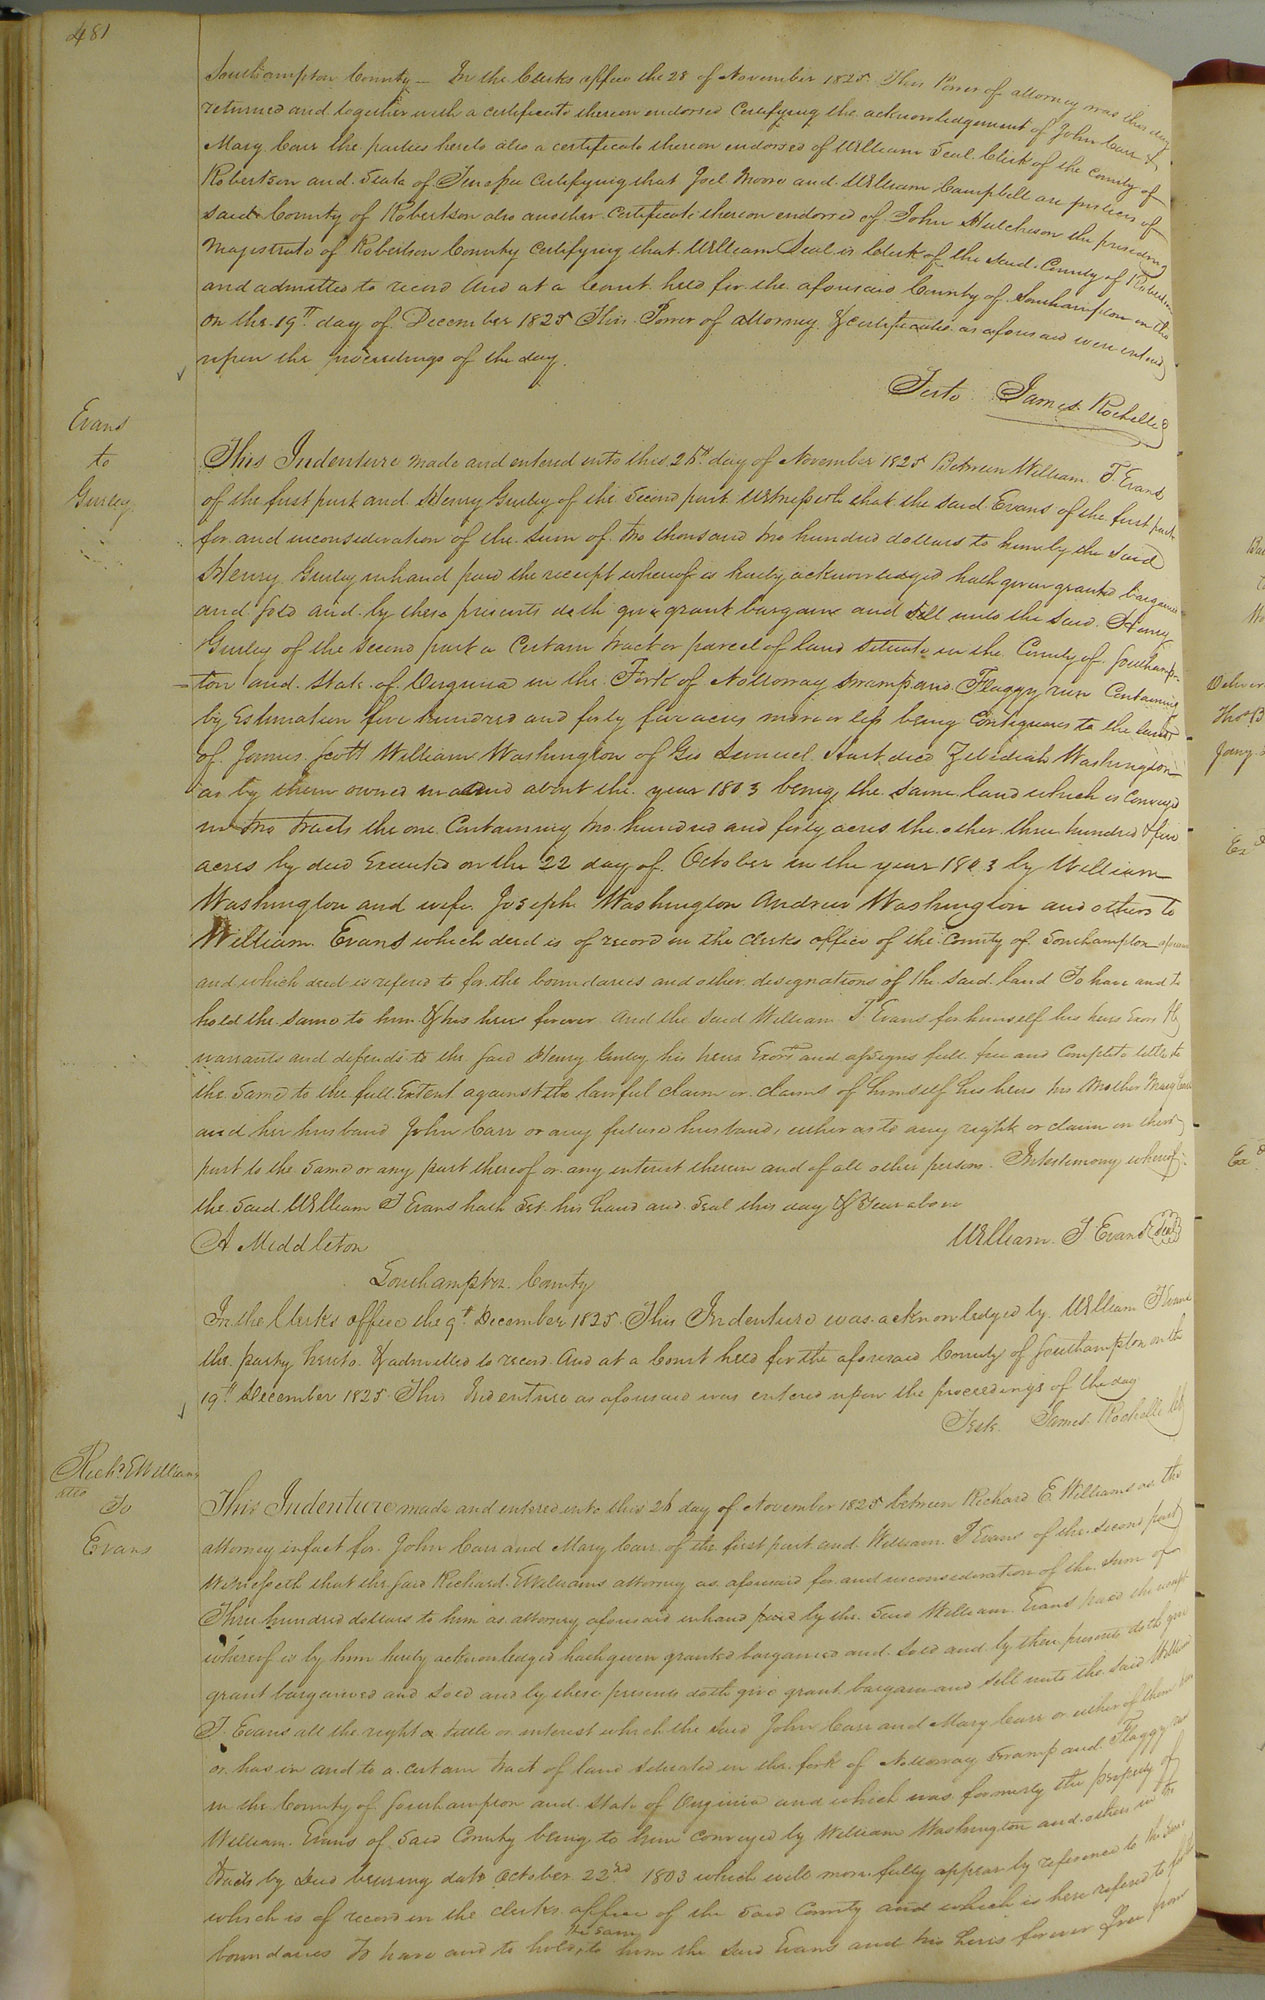 481
Southampton County — In the Clerks office the 28 of November 1825 This Power of attorney was this day
returned and together with a certificate thereon endorsed Certifying the acknowledgement of John Carr &
Mary Carr the parties hereto also a certificate thereon endorsed of William Seal Clerk of the County of
Robertson and State of Tenessee Certifying that Joel Moore and William Campbell are justices of
said County of Robertson also another Certificate thereon endorsed of John Hutcheson the presiding
Magistrate of Robertson County Certifying that William Seal is Clerk of the said County of Robertson
and admitted to record And at a Court held for the aforesaid County of Southampton on the
on the 19th day of December 1825 This Power of attorney & certificates as aforesaid were entered
upon the proceedings of the day.
Teste James Rochelle
Evans
to
Gurley
This Indenture made and entered into this 26th day of November 1825 Between William T. Evans
of the first part and Henry Gurley of the Second part Witnesseth that the said Evans of the first part
for and inconsideration of the sum of two thousand two hundred dollars to him by the said
Henry Gurley inhand paid the receipt whereof is hereby acknowledged hath given granted bargained
and sold and by these presents doth give grant bargain and sell unto the said Henry
Gurley of the Second part a Certain tract or parcel of land situate in the County of Southamp-
ton and State of Virginia in the Fork of Nottoway swamp and Flaggy run Containing
by Estimation five hundred and forty five acres more or less being Contiguous to the lands
of James Scott William Washington of Geo Samuel Hart decd Zebediah Washington
as by them owned in and about the year 1803 being the same land which is Conveyed
in two tracts the one Containing two hundred and forty acres the other three hundred & five
acres by deed Executed on the 22 day of October in the year 1803 by William
Washington and wife Joseph Washington Andrew Washington and others to
William Evans which deed is of record in the clerks office of the County of Southampton
and which deed is refered to for the boundaries and other designations of the said land To have and to
hold the same to him & his heirs forever And the said William T. Evans for himself his heirs Exors
warrants and defends to the said Henry Gurley his heirs Exors and assigns full free and Complete title to
the same to the full Extent against the lawful claim or claims of himself his heirs his Mother Mary Carr
and her husband John Carr or any future husband, either as to any right or claim on their
part to the same or any part thereof or any interest therein and of all other persons. In testimony whereof
the said William T Evans hath set his hand and seal this day & Year above
A Middleton William T Evans Seal
Southampton County
In the Clerks office the 9th December 1825 This Indenture was acknowledged by William T Evans
the party hereto & admitted to record And at a Court held for the aforesaid County of Southampton on the
19th December 1825 This Indenture as aforesaid was entered upon the proceedings of the day
Teste James Rochelle Clk
Richd E Williams
atto
To
Evans
This Indenture made and entered into this 26 day of November 1825 between Richard E. Williams as the
attorney infact for John Carr and Mary Carr of the first part and William T Evans of the second part
Witnesseth that the said Richard E Williams attorney as aforesaid for and inconsideration of the sum of
Three hundred dollars to him as attorney aforesaid inhand paid by the said William Evans paid the receipt
whereof is by him hereby acknowledged hath given granted bargained and sold and by these presents doth give
grant bargained and sold and by these presents doth give grant bargain and sell unto the said William
T. Evans all the right a tittle or interest which the said John Carr and Mary Carr or either of them
or has in and to a certain tract of land situated in the fork of Nottoway Swamp and Flaggy run
in the County of Southampton and State of Virginia and which was formerly the property of
William Evans of said County being to him conveyed by William Washington and others in two
tracts by Deed bearing date October 22nd 1803 which will more fully appear by reference to the same
which is of record in the clerks office of the said County and which is here refered to for the
boundaries To have and to hold the same to him the said Evans and his heirs forever free from